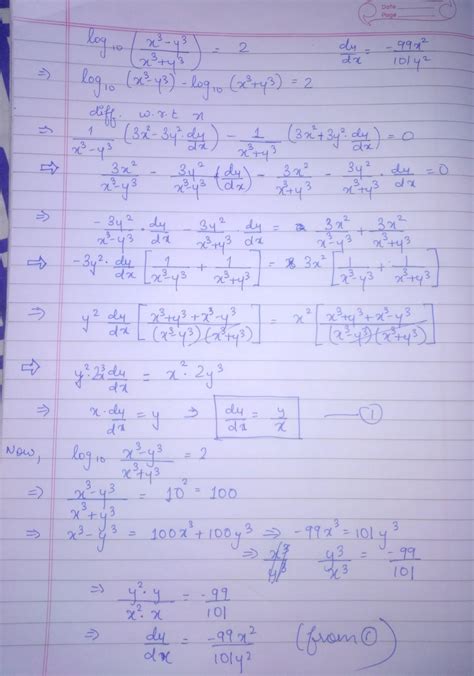 Date
Page
log₁₀ (x³-y³ / x³+y³) = 2    dy/dx = -99x² / 101y²
⇒ log₁₀ (x³-y³) - log₁₀ (x³+y³) = 2
diff. w.r.t x
⇒ 1/(x³-y³) (3x²-3y² dy/dx) - 1/(x³+y³) (3x²+3y² dy/dx) = 0
⇒ 3x²/(x³-y³) - 3y²/(x³-y³) (dy/dx) - 3x²/(x³+y³) - 3y²/(x³+y³) · dy/dx = 0
⇒ -3y²/(x³-y³) · dy/dx - 3y²/(x³+y³) dy/dx = 3x²/(x³-y³) + 3x²/(x³+y³)
⇒ -3y² · dy/dx [1/(x³-y³) + 1/(x³+y³)] = 3x² [1/(x³-y³) + 1/(x³+y³)]
⇒ y² dy/dx [x³+y³+x³-y³ / (x³-y³)(x³+y³)] = x² [x³+y³+x³-y³ / (x³-y³)(x³+y³)]
⇒ y²·2x³ dy/dx = x²·2y³
⇒ x·dy/dx = y ⇒ dy/dx = y/x — ①
Now, log₁₀ x³-y³ / x³+y³ = 2
⇒ x³-y³ / x³+y³ = 10² = 100
⇒ x³-y³ = 100x³+100y³ ⇒ -99x³ = 101y³
⇒ x³/y³ y³/x³ = -99/101
⇒ y²·y / x²·x = -99/101
⇒ dy/dx = -99x² / 101y² (from ①)